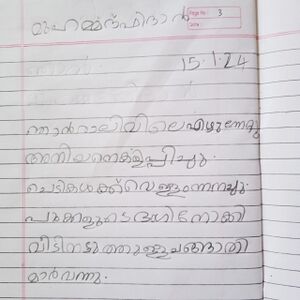 മുഹമ്മദ്ഫിദാൻ
Page No: 3
Date
15.1.24
ഞാൻ രാലിവിലെ എഴുന്നേറ്റു
അനിയനെകളിപ്പിച്ചു.
ചെടികൾക്ക് വെള്ളം നനച്ചു.
പൂക്കളുടെ ഭംഗി നോക്കി
വീടിനടുത്തുള്ള ചങ്ങാതി
മാർ വന്നു.